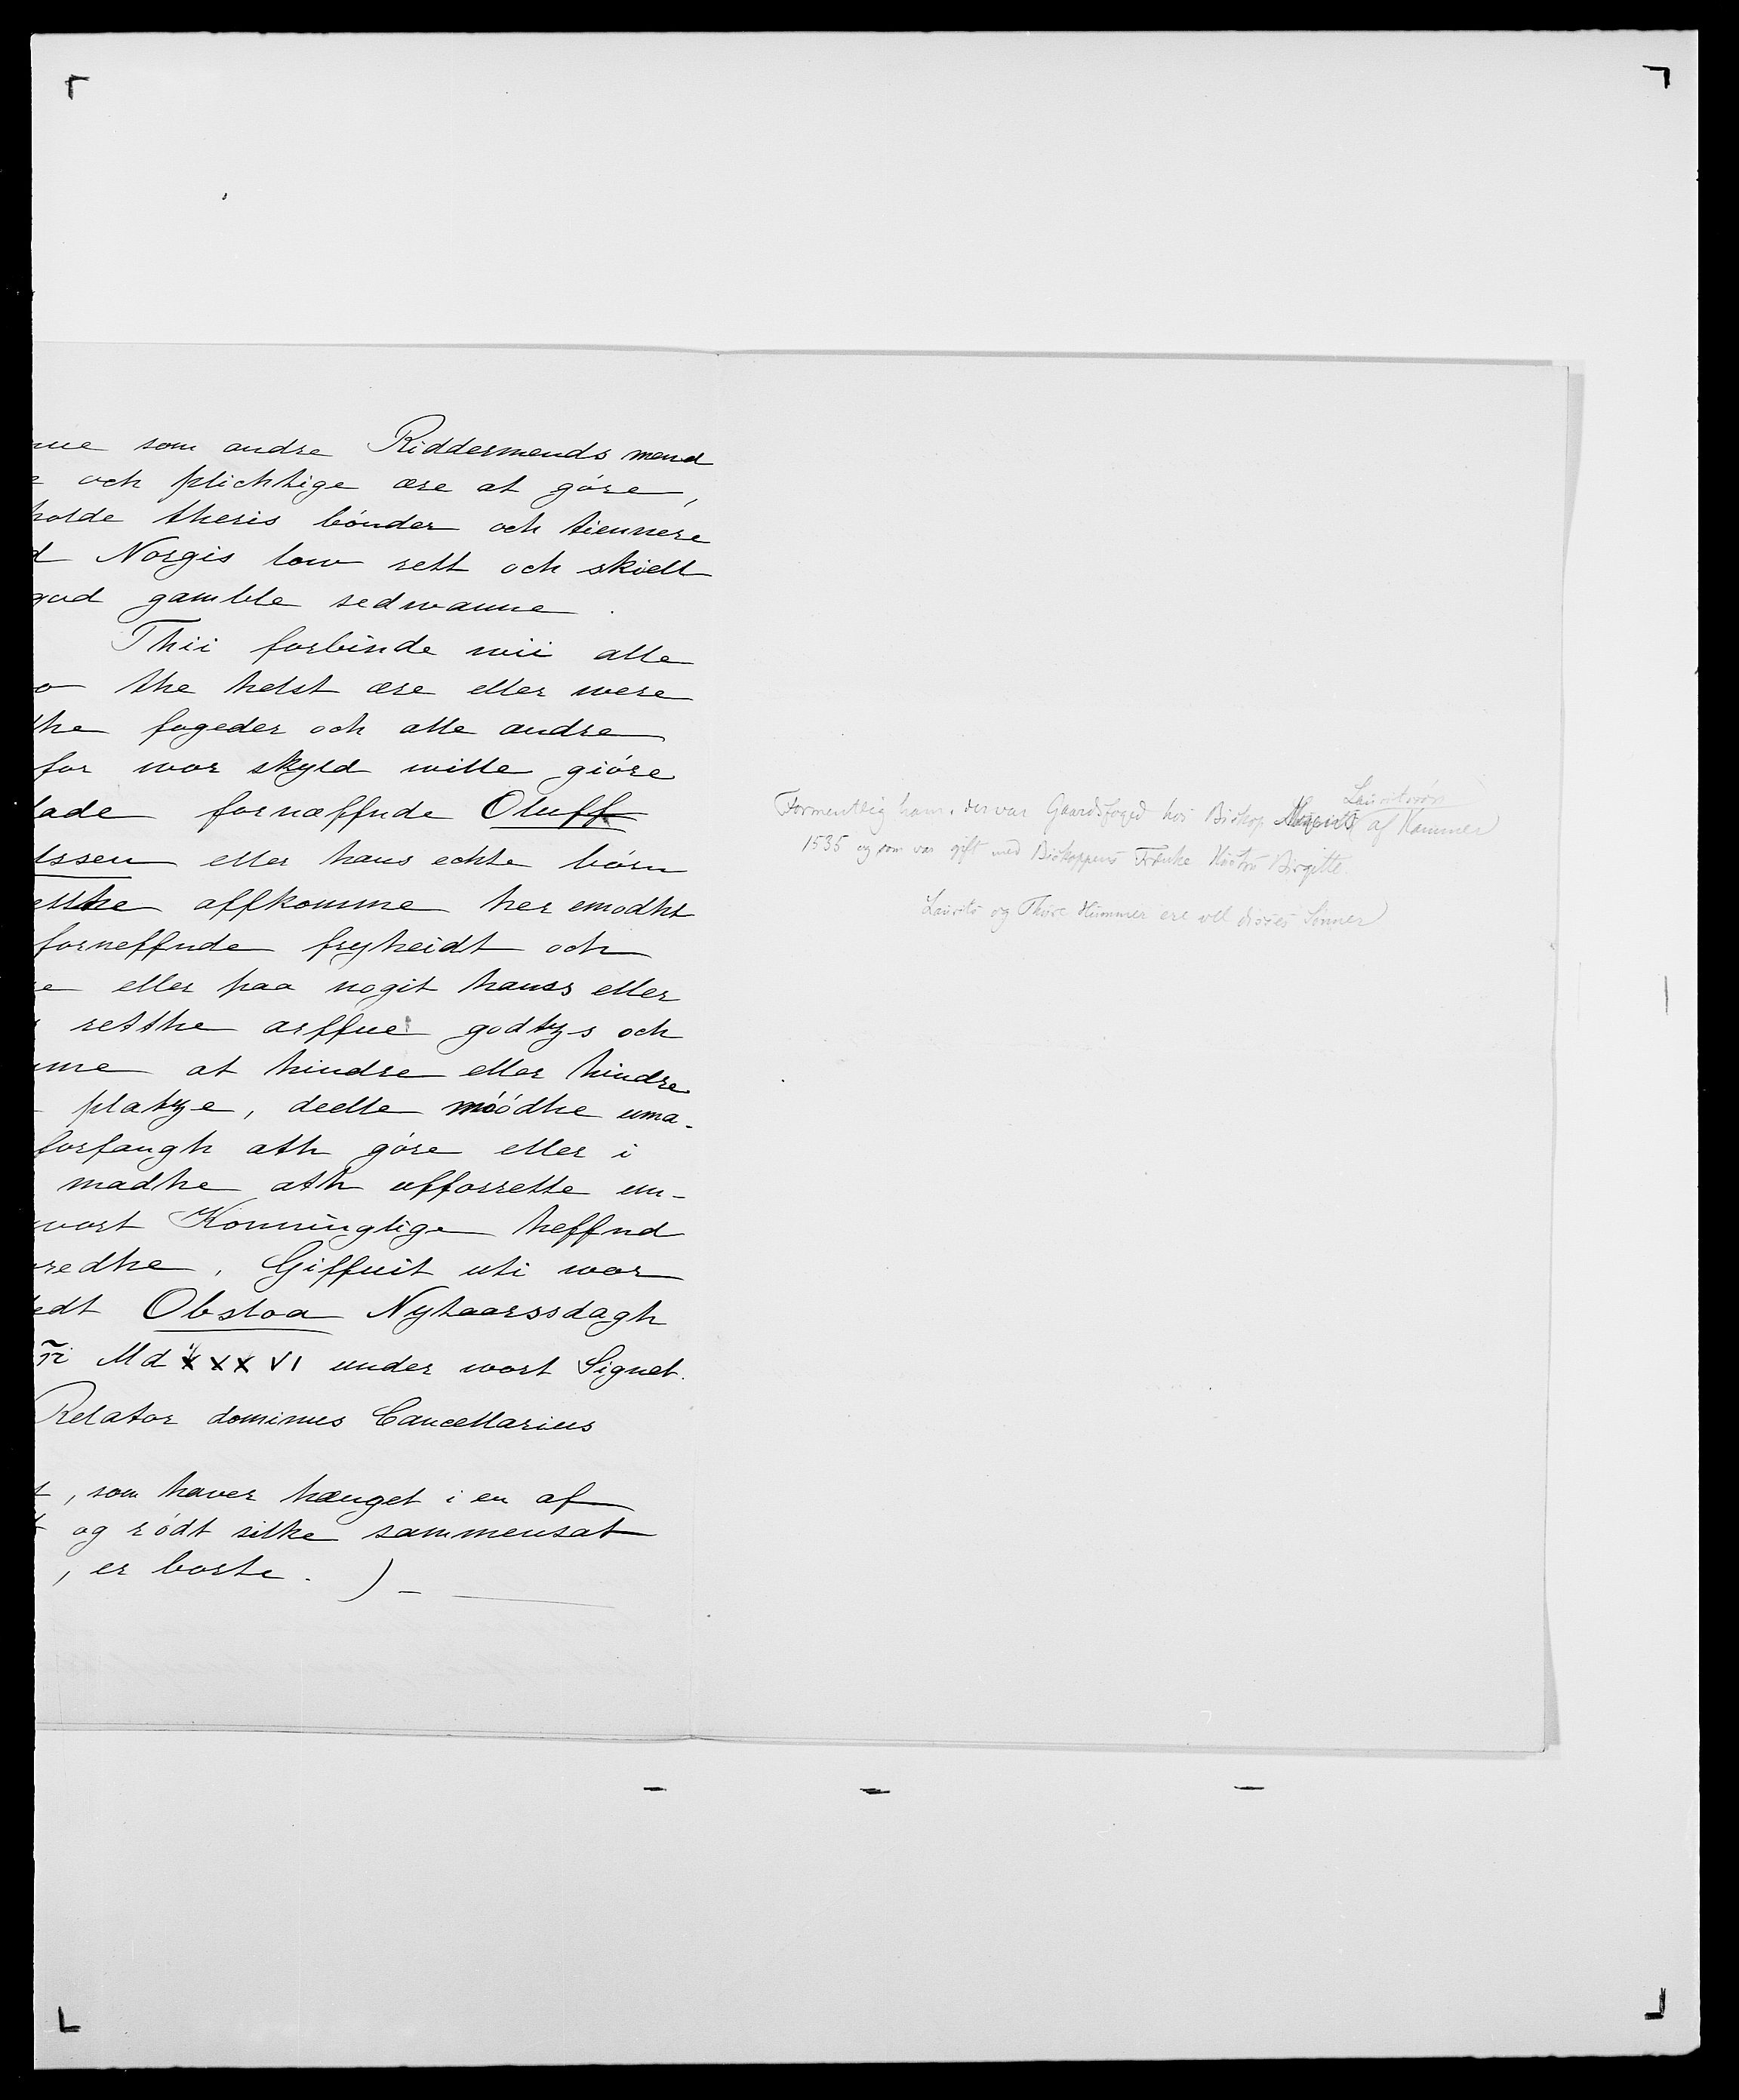 nue som andre Riddermends mend
och plichtige ære at góre,
holde theris bónder och tiennere
d Norgis low rett och skiell
gud gamble sedwanne.
Thii forbinde wii alle
o the helst ære eller were
the fogeder och alle andre
for wor skyld wille gióre
lade fornæffnde Oluff
lssen eller hans echte bórn
etthe affkomme her emodht
forneffnde fryheidt och
e eller paa nogit hanss eller
retthe arffue godtzs och
me at hindre eller hindre
platze, deelle móódhe uma-
forfangh ath góre eller i
madhe ath ufforrette un-
wort Konninglige heffnd
redhe. Giffuit uti wor
edt Obsloa Nyhaarssdagh
Md xxx VI under wort Signet.
Relator dominus Cancellarius
t, som haver hænget i en af
t ogródt silke sammensat
, er borte. ) -
Lauritssön
Formentlig ham, der var Gaardsfoged hos Biskop af Hammer
1535 og som var gift med Biskoppens Frænke Hústrú Birgitte.
Laurits og Thore Hummer ere vel disses Sønner